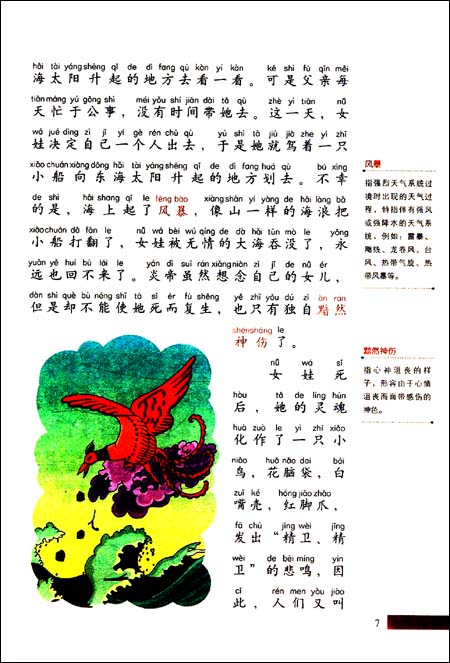 hǎi tài yáng shēng qǐ de dì fang qù kàn yí kàn kě shì fù qīn měi
海太阳升起的地方去看一看。可是父亲每
tiān máng yú gōng shì méi yǒu shí jiān dài tā qù zhè yì tiān nǚ
天忙于公事，没有时间带她去。这一天，女
wá jué dìng zì jǐ yí gè rén chū qù yú shì tā jiù jià zhe yì zhī
娃决定自己一个人出去，于是她就驾着一只
xiǎo chuán xiàng dōng hǎi tài yáng shēng qǐ de dì fang huá qù bú xìng
小船向东海太阳升起的地方划去。不幸
de shì hǎi shang qǐ le fēng bào xiàng shān yí yàng de hǎi làng bǎ
的是，海上起了风暴，像山一样的海浪把
xiǎo chuán dǎ fān le nǚ wá bèi wú qíng de dà hǎi tūn mò le yǒng
小船打翻了，女娃被无情的大海吞没了，永
yuǎn yě huí bù lái le yán dì suī rán xiǎng niàn zì jǐ de nǚ ér
远也回不来了。炎帝虽然想念自己的女儿，
dàn shì què bù néng shǐ tā sǐ ér fù shēng yě zhǐ yǒu dú zì àn rán
但是却不能使她死而复生，也只有独自黯然
shén shāng le
神伤了。
nǚ wá sǐ
女娃死
hòu tā de líng hún
后，她的灵魂
huà zuò le yì zhī xiǎo
化作了一只小
niǎo huā nǎo dai bái
鸟，花脑袋，白
zuǐ ké hóng jiǎo zhǎo
嘴壳，红脚爪，
fā chū jīng wèi jīng
发出“精卫、精
wèi de bēi míng yīn
卫”的悲鸣，因
cǐ rén men yòu jiào
此，人们又叫
风暴
指强烈天气系统过
境时出现的天气过
程，特指伴有强风
或强降水的天气系
统，例如：雷暴、
飑线、龙卷风、台
风、热带气旋、热
带风暴等。
黯然神伤
指心神沮丧的样
子，形容由于心情
沮丧而面带感伤的
神色。
7